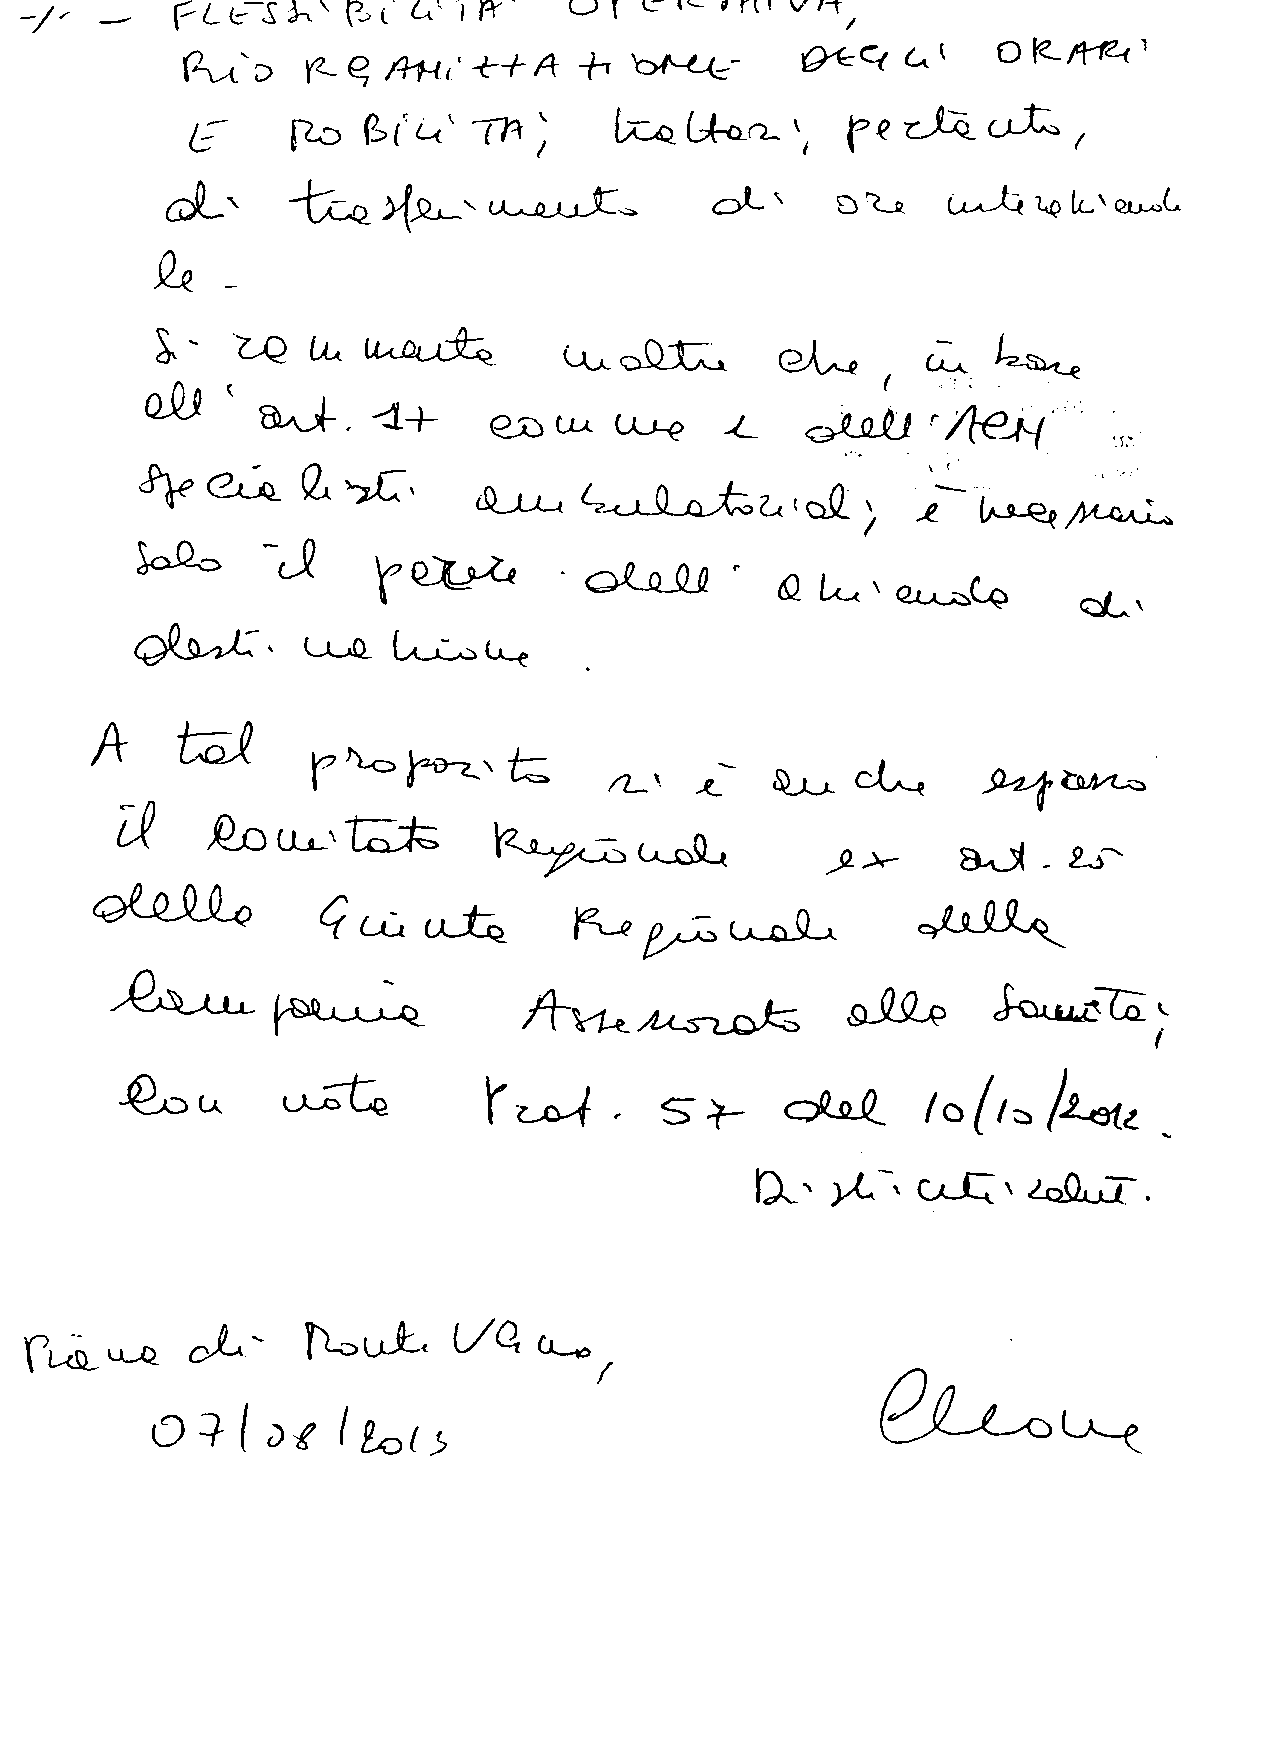 -/- - FLESSIBILITA' OPERATIVA,
RIORGANIZZAZIONE DEGLI ORARI
E MOBILITA'; trattasi, pertanto,
di trasferimento di ore interazienda
le -
Si rammenta inoltre che, in base
all'art. 17 comma 2 dell'ACN
specialisti ambulatoriali, è necessario
solo il parere dell'azienda di
destinazione.
A tal proposito si è anche espresso
il Comitato Regionale ex art. 25
della Giunta Regionale della
Campania Assessorato alla Sanità,
con nota Prot. 57 del 10/10/2012.
Distinti saluti.
Piana di Monte Verna,
07/08/2013